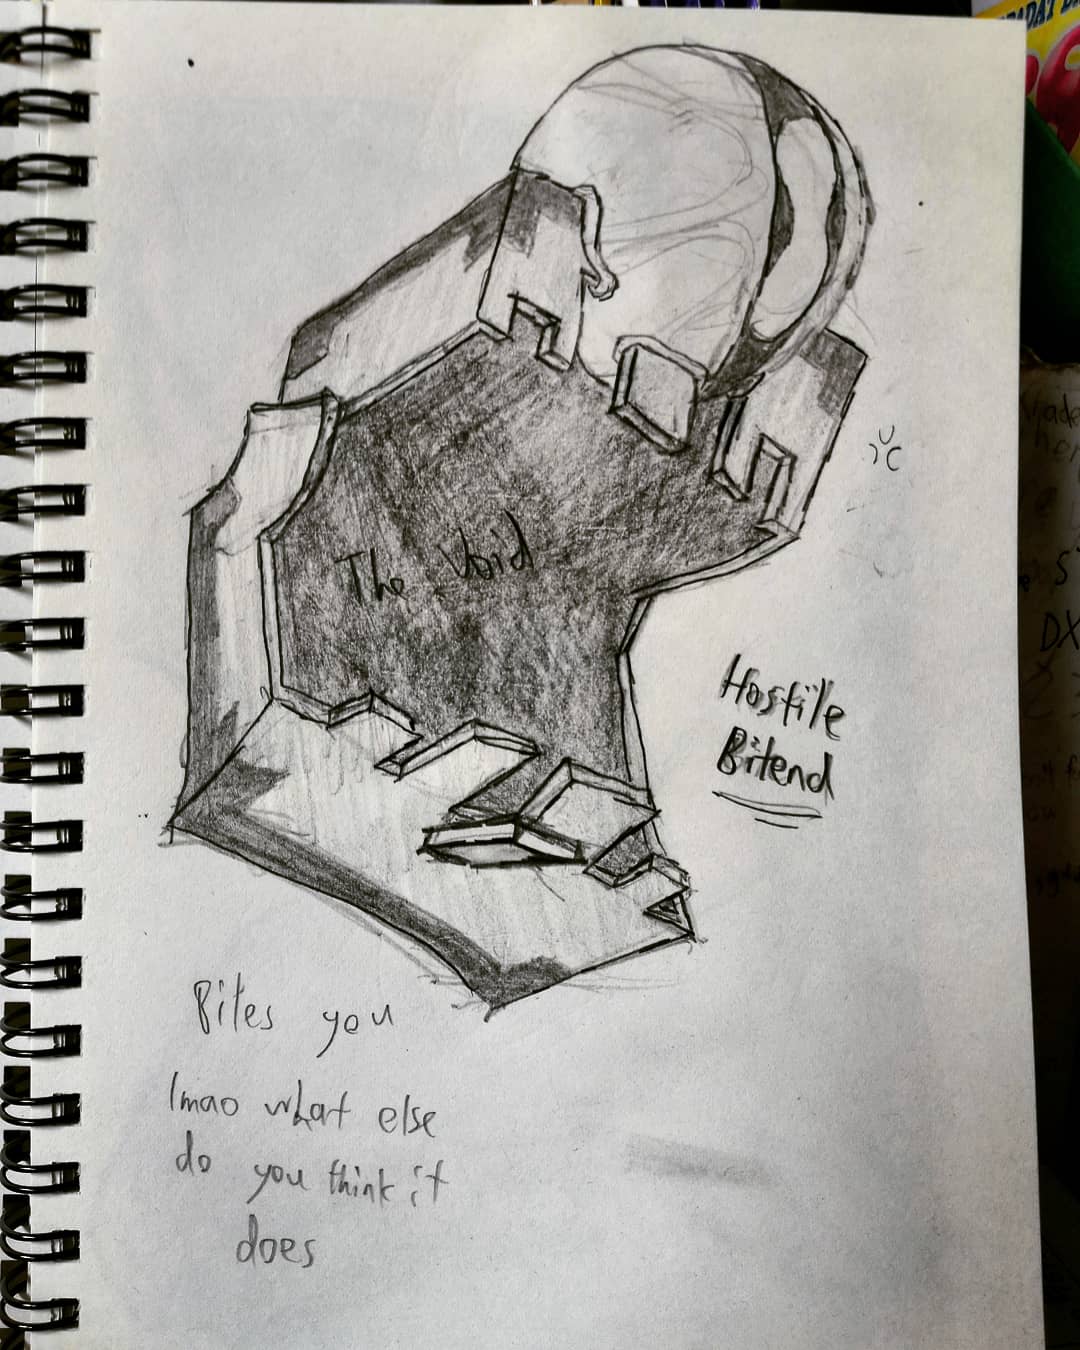 The Void
Hostile
Bitend
Bites you
lmao what else
do you think it
does
DX